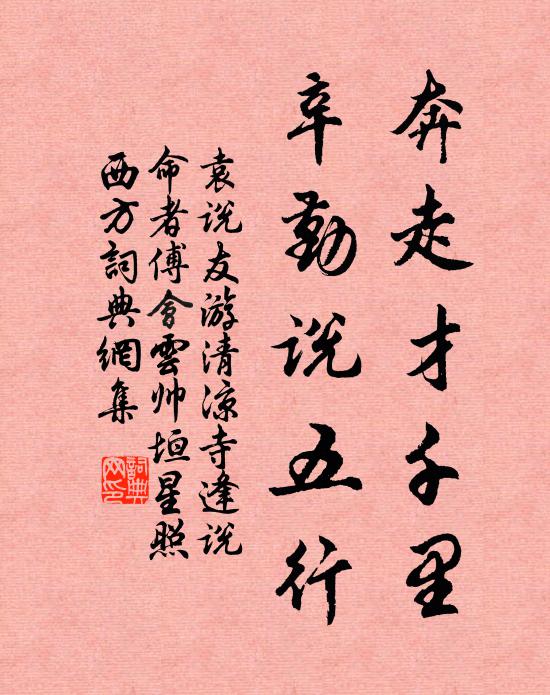 奔走才千里
辛勤说五行
袁说友游清凉寺逢说
命者傅會雲帅垣星照
西方詞典網集
詞典
网印